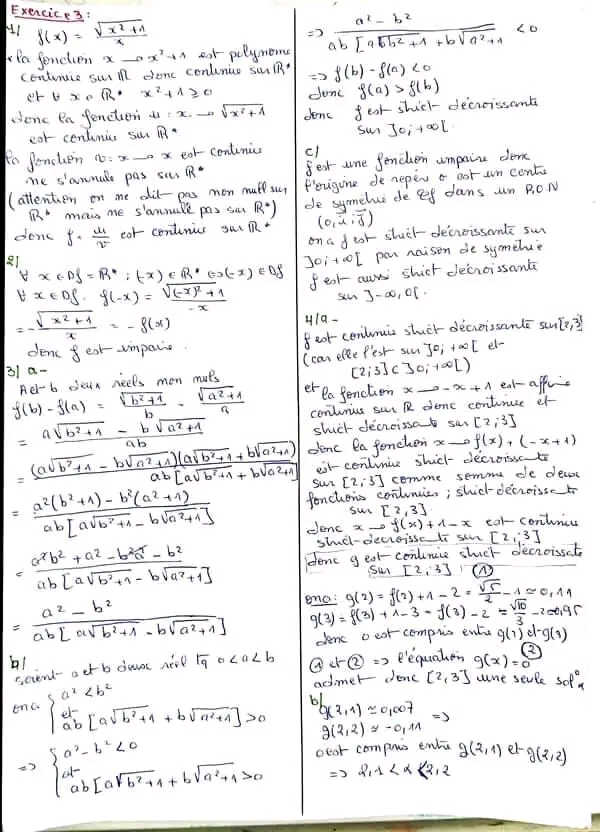 Exercice 3:
1/ f(x) = √(x²+1) / x
* la fonction x → x²+1 est polynome
continue sur ℝ donc continue sur ℝ*
et ∀ x ∈ ℝ* x²+1 ≥ 0
donc la fonction u : x → √(x²+1)
est continue sur ℝ*
la fonction v : x → x est continue
ne s'annule pas sur ℝ*
(attention on ne dit pas non null sur
ℝ* mais ne s'annule pas sur ℝ*)
donc f = u/v est continue sur ℝ*
2/
∀ x ∈ Df = ℝ* ; (-x) ∈ ℝ* ⇔ (-x) ∈ Df
∀ x ∈ Df. f(-x) = √((-x)²+1) / -x
= - √(x²+1) / x = - f(x)
donc f est impaire.
3/ a-
a et b deux réels non nuls
f(b) - f(a) = √(b²+1) / b - √(a²+1) / a
= (a√(b²+1) - b√(a²+1)) / ab
= (a√(b²+1) - b√(a²+1))(a√(b²+1) + b√(a²+1)) / ab[a√(b²+1) + b√(a²+1)]
= a²(b²+1) - b²(a²+1) / ab[a√(b²+1) - b√(a²+1)]
= a²b² + a² - b²a² - b² / ab[a√(b²+1) - b√(a²+1)]
= a² - b² / ab[a√(b²+1) - b√(a²+1)]
b/
soient a et b deux réel tq 0 < a < b
ona { a² < b²
et
ab[a√(b²+1) + b√(a²+1)] > 0
⇒ { a² - b² < 0
et
ab[a√(b²+1) + b√(a²+1)] > 0
⇒ a² - b² / ab[a√(b²+1) + b√(a²+1)] < 0
⇒ f(b) - f(a) < 0
donc f(a) > f(b)
donc f est strict décroissante
sur ]0, +∞[.
c/
f est une fonction impaire donc
l'origine de repère o est un centre
de symetrie de ζf dans un R.O.N
(o, i, j)
on a f est strict décroissante sur
]0, +∞[ par raison de symétrie
f est aussi strict décroissante
sur ]-∞, 0[.
4/a-
f est continue strict décroissante sur [2,3]
(car elle l'est sur ]0, +∞[ et
[2;3] ⊂ ]0, +∞[)
et la fonction x → -x+1 est affine
continue sur ℝ donc continue et
strict décroissant sur [2;3]
donc la fonction x → f(x) + (-x+1)
est continue strict décroissante
sur [2,3] comme somme de deux
fonctions continues, strict décroissante
sur [2,3].
donc x → f(x) + 1 - x est continue
strict décroissante sur [2,3]
donc g est continue strict décroissate
sur [2,3] : ①
ona: g(2) = f(2) + 1 - 2 = √5/2 - 1 ≃ 0,11
g(3) = f(3) + 1 - 3 = f(3) - 2 = √10/3 - 2 ≃ 0,95
donc 0 est compris entre g(2) et g(3)
②
① et ② ⇒ l'équation g(x) = 0
admet donc [2,3] une seule sol° α
b/
g(2,1) ≃ 0,007
g(2,2) ≃ -0,11 ⇒
0 est compris entre g(2,1) et g(2,2)
⇒ 2,1 < α < 2,2